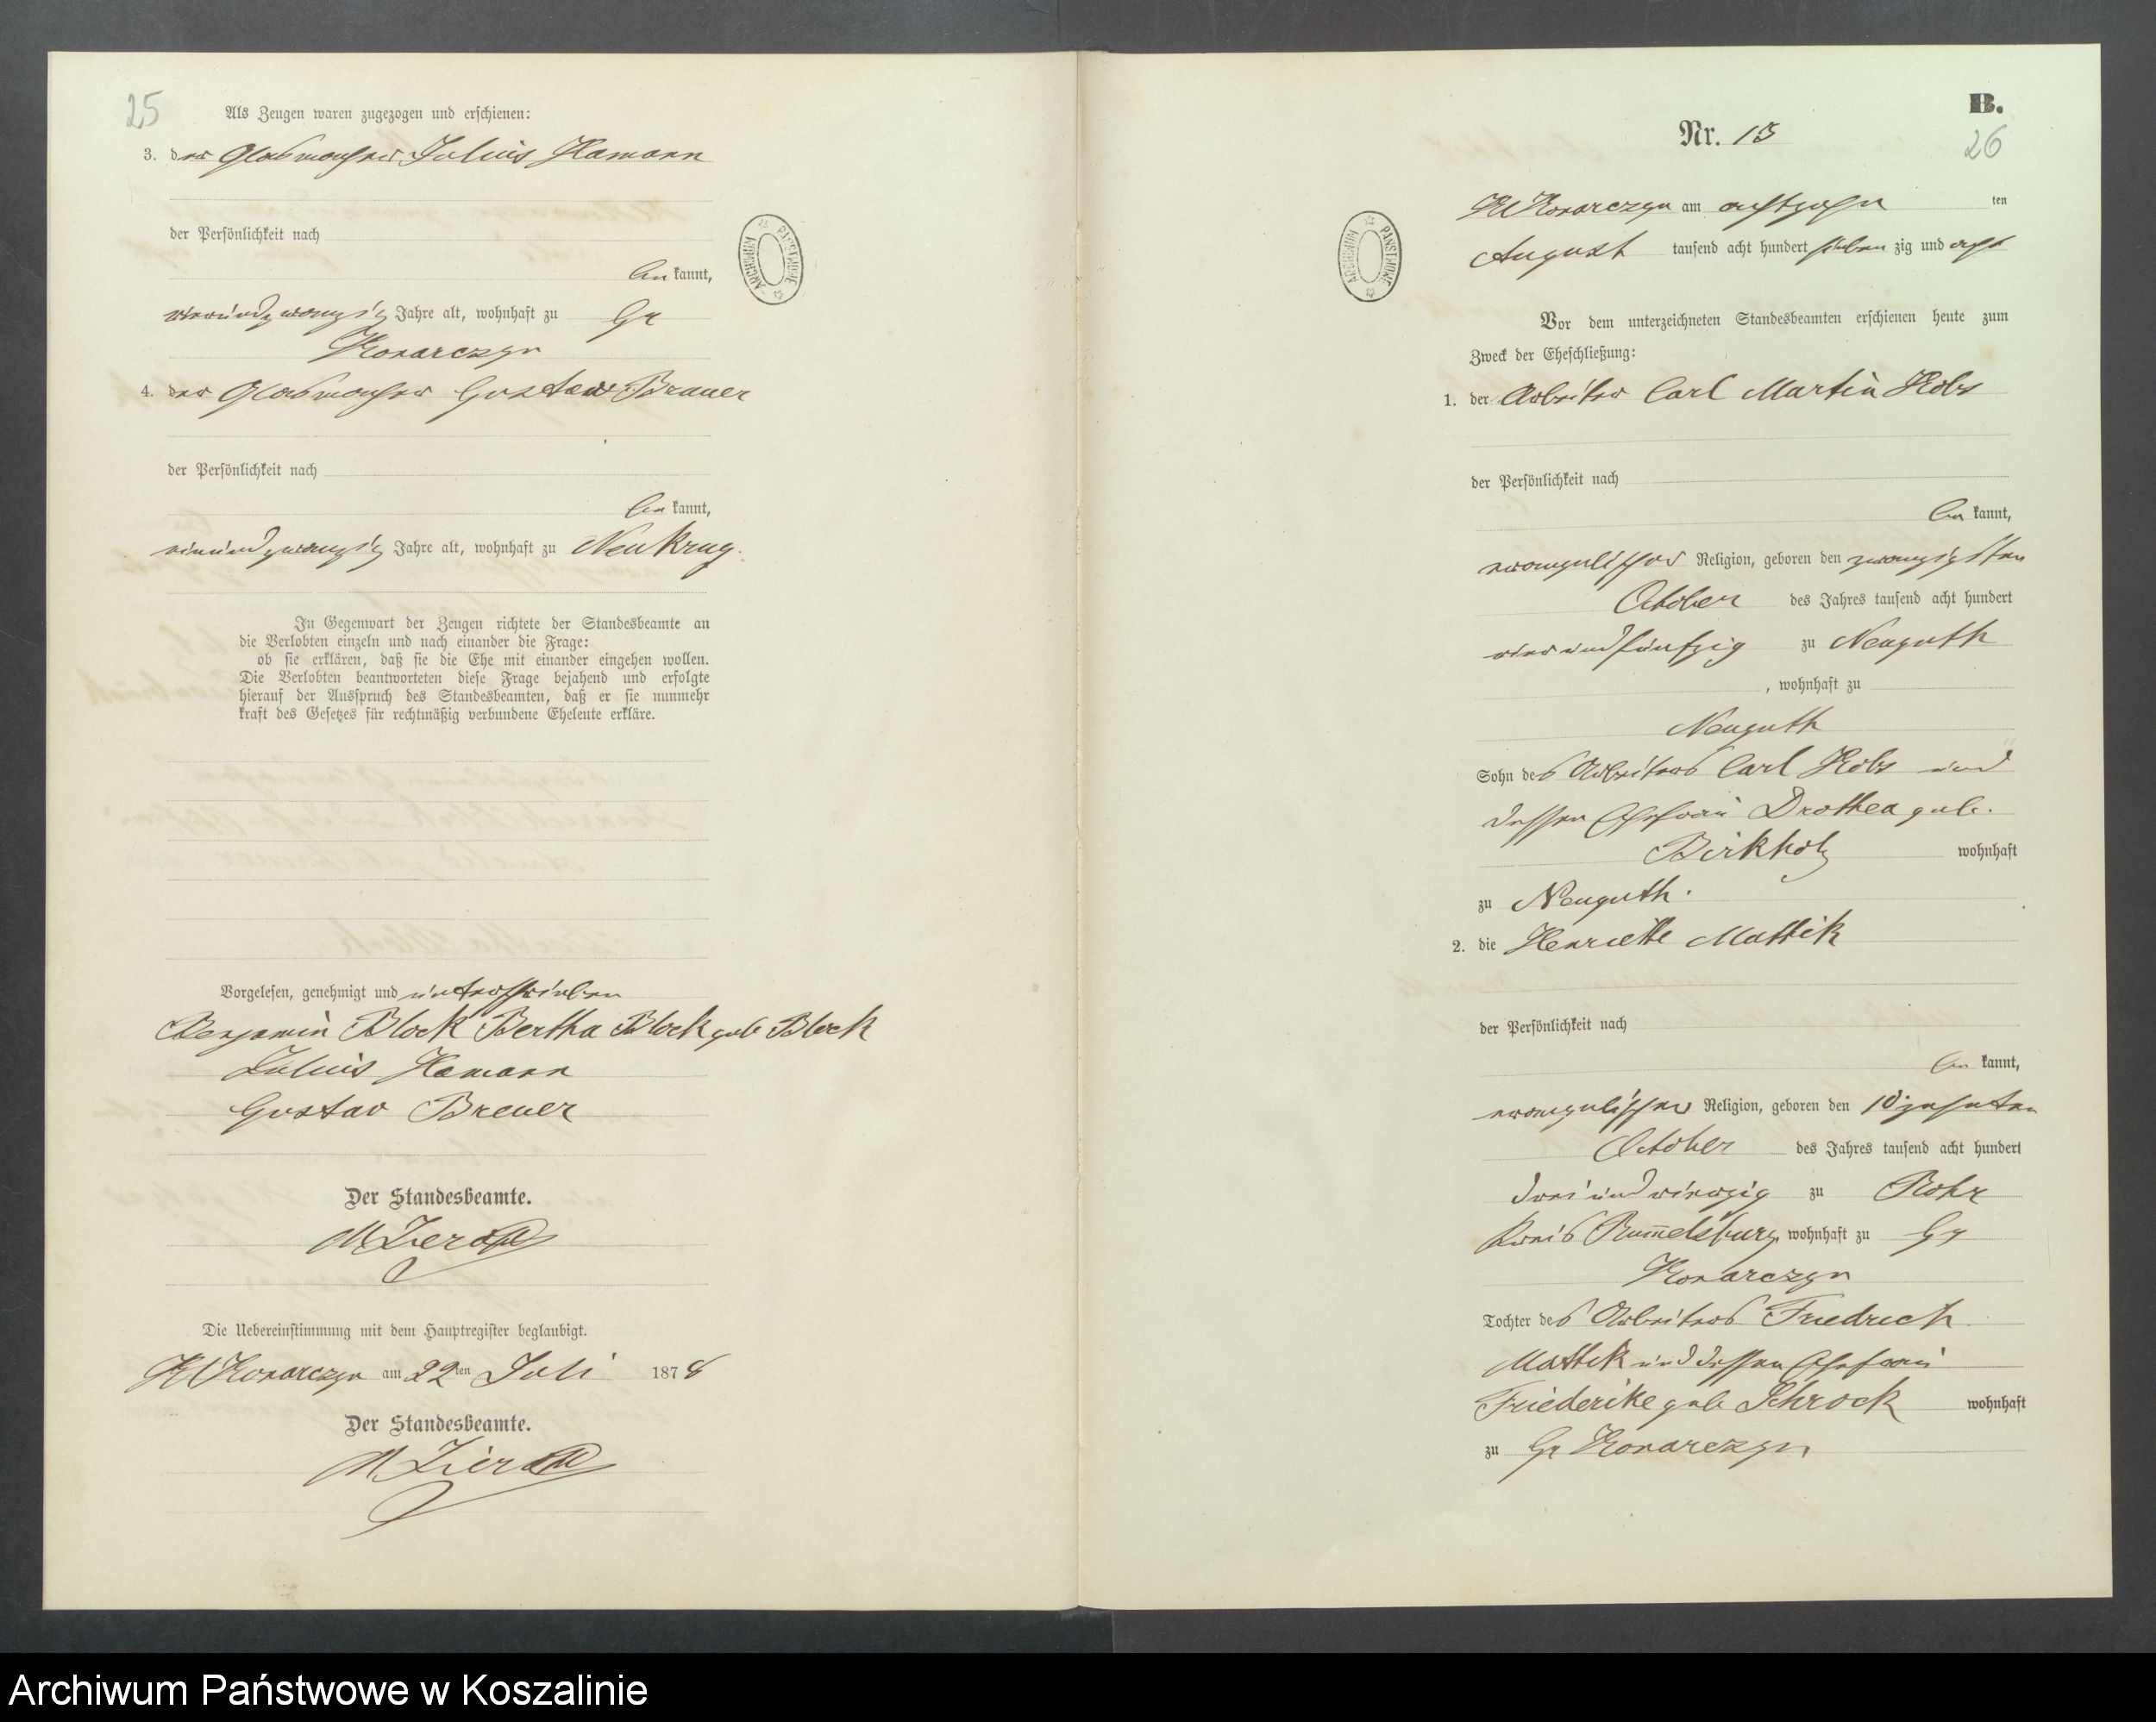 25
Als Zeugen waren zugezogen und erschienen:
3. der Glasmacher Julius Hamann
der Persönlichkeit nach
be kannt,
vierundzwanzig Jahre alt, wohnhaft zu Gr
Konarczyn
4. der Glasmacher Gustav Brauer
der Persönlichkeit nach
be kannt,
einundzwanzig Jahre alt, wohnhaft zu Neukrug.
In Gegenwart der Zeugen richtete der Standesbeamte an
die Verlobten einzeln und nach einander die Frage:
ob sie erklären, daß sie die Ehe mit einander eingehen wollen.
Die Verlobten beantworteten diese Frage bejahend und erfolgte
hierauf der Ausspruch des Standesbeamten, daß er sie nunmehr
kraft des Gesetzes für rechtmäßig verbundene Eheleute erkläre.
Vorgelesen, genehmigt und unterschrieben
Benjamin Block Bertha Block geb Block
Julius Hamann
Gustav Breuer
Der Standesbeamte.
Die Uebereinstimmung mit dem Hauptregister beglaubigt.
Kl Konarczyn am 22ten Juli 1878
Der Standesbeamte.
ARCHIWUM PAŃSTWOWE
B.
Nr. 15
26
Kl Konarczyn am achtzehn ten
August tausend acht hundert sieben zig und acht
Vor dem unterzeichneten Standesbeamten erschienen heute zum
Zweck der Eheschließung:
1. der Arbeiter Carl Martin Kobs
der Persönlichkeit nach
be kannt,
evangelischer Religion, geboren den zwanzigsten
October des Jahres tausend acht hundert
vierundfünfzig zu Neuguth
, wohnhaft zu
Neuguth
Sohn des Arbeiters Carl Kobs und
dessen Ehefrau Drothea geb.
Birkholz wohnhaft
zu Neuguth.
2. die Henriette Mattik
der Persönlichkeit nach
be kannt,
evangelischer Religion, geboren den 10 zehnten
October des Jahres tausend acht hundert
dreiundvierzig zu Rohr
Kreis Rummelsburg wohnhaft zu Gr
Konarczyn
Tochter des Arbeiters Friedrich
Mattik und dessen Ehefrau
Friederike geb Schrock wohnhaft
zu Gr Konarczyn
ARCHIWUM PAŃSTWOWE
Archiwum Państwowe w Koszalinie